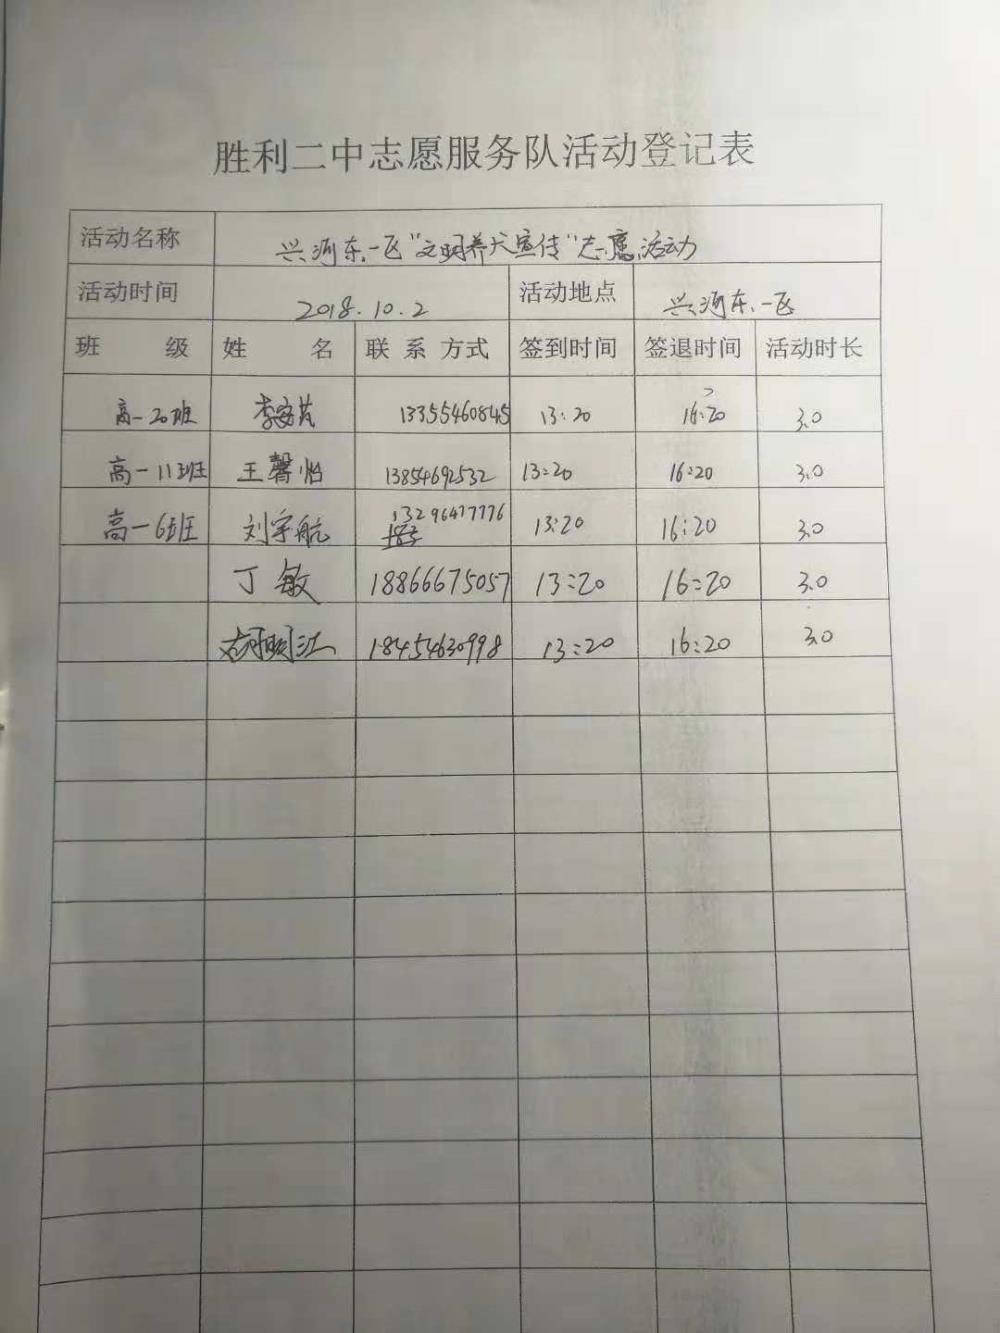 胜利二中志愿服务队活动登记表
活动名称 兴河东一区"文明养犬宣传"志愿活动
活动时间 2018.10.2 活动地点 兴河东一区
班 级 姓 名 联 系 方式 签到时间 签退时间 活动时长
高一20班 李安芃 13355460845 13:20 16:20 3.0
高一11班 王馨怡 13854692532 13:20 16:20 3.0
高一6班 刘宇航 13296477776 13:20 16:20 3.0
丁敏 18866675057 13:20 16:20 3.0
18454630998 13:20 16:20 3.0